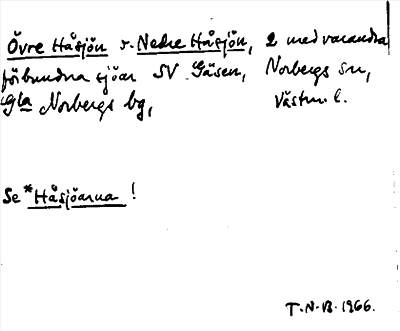 Övre Håsjön o. Nedre Håsjön, 2 med varandra
förbundna sjöar SV Gäsen, Norbergs sn,
Gla Norbergs bg, Västm l.
Se *Håsjöarna !
T.N-B. 1966.